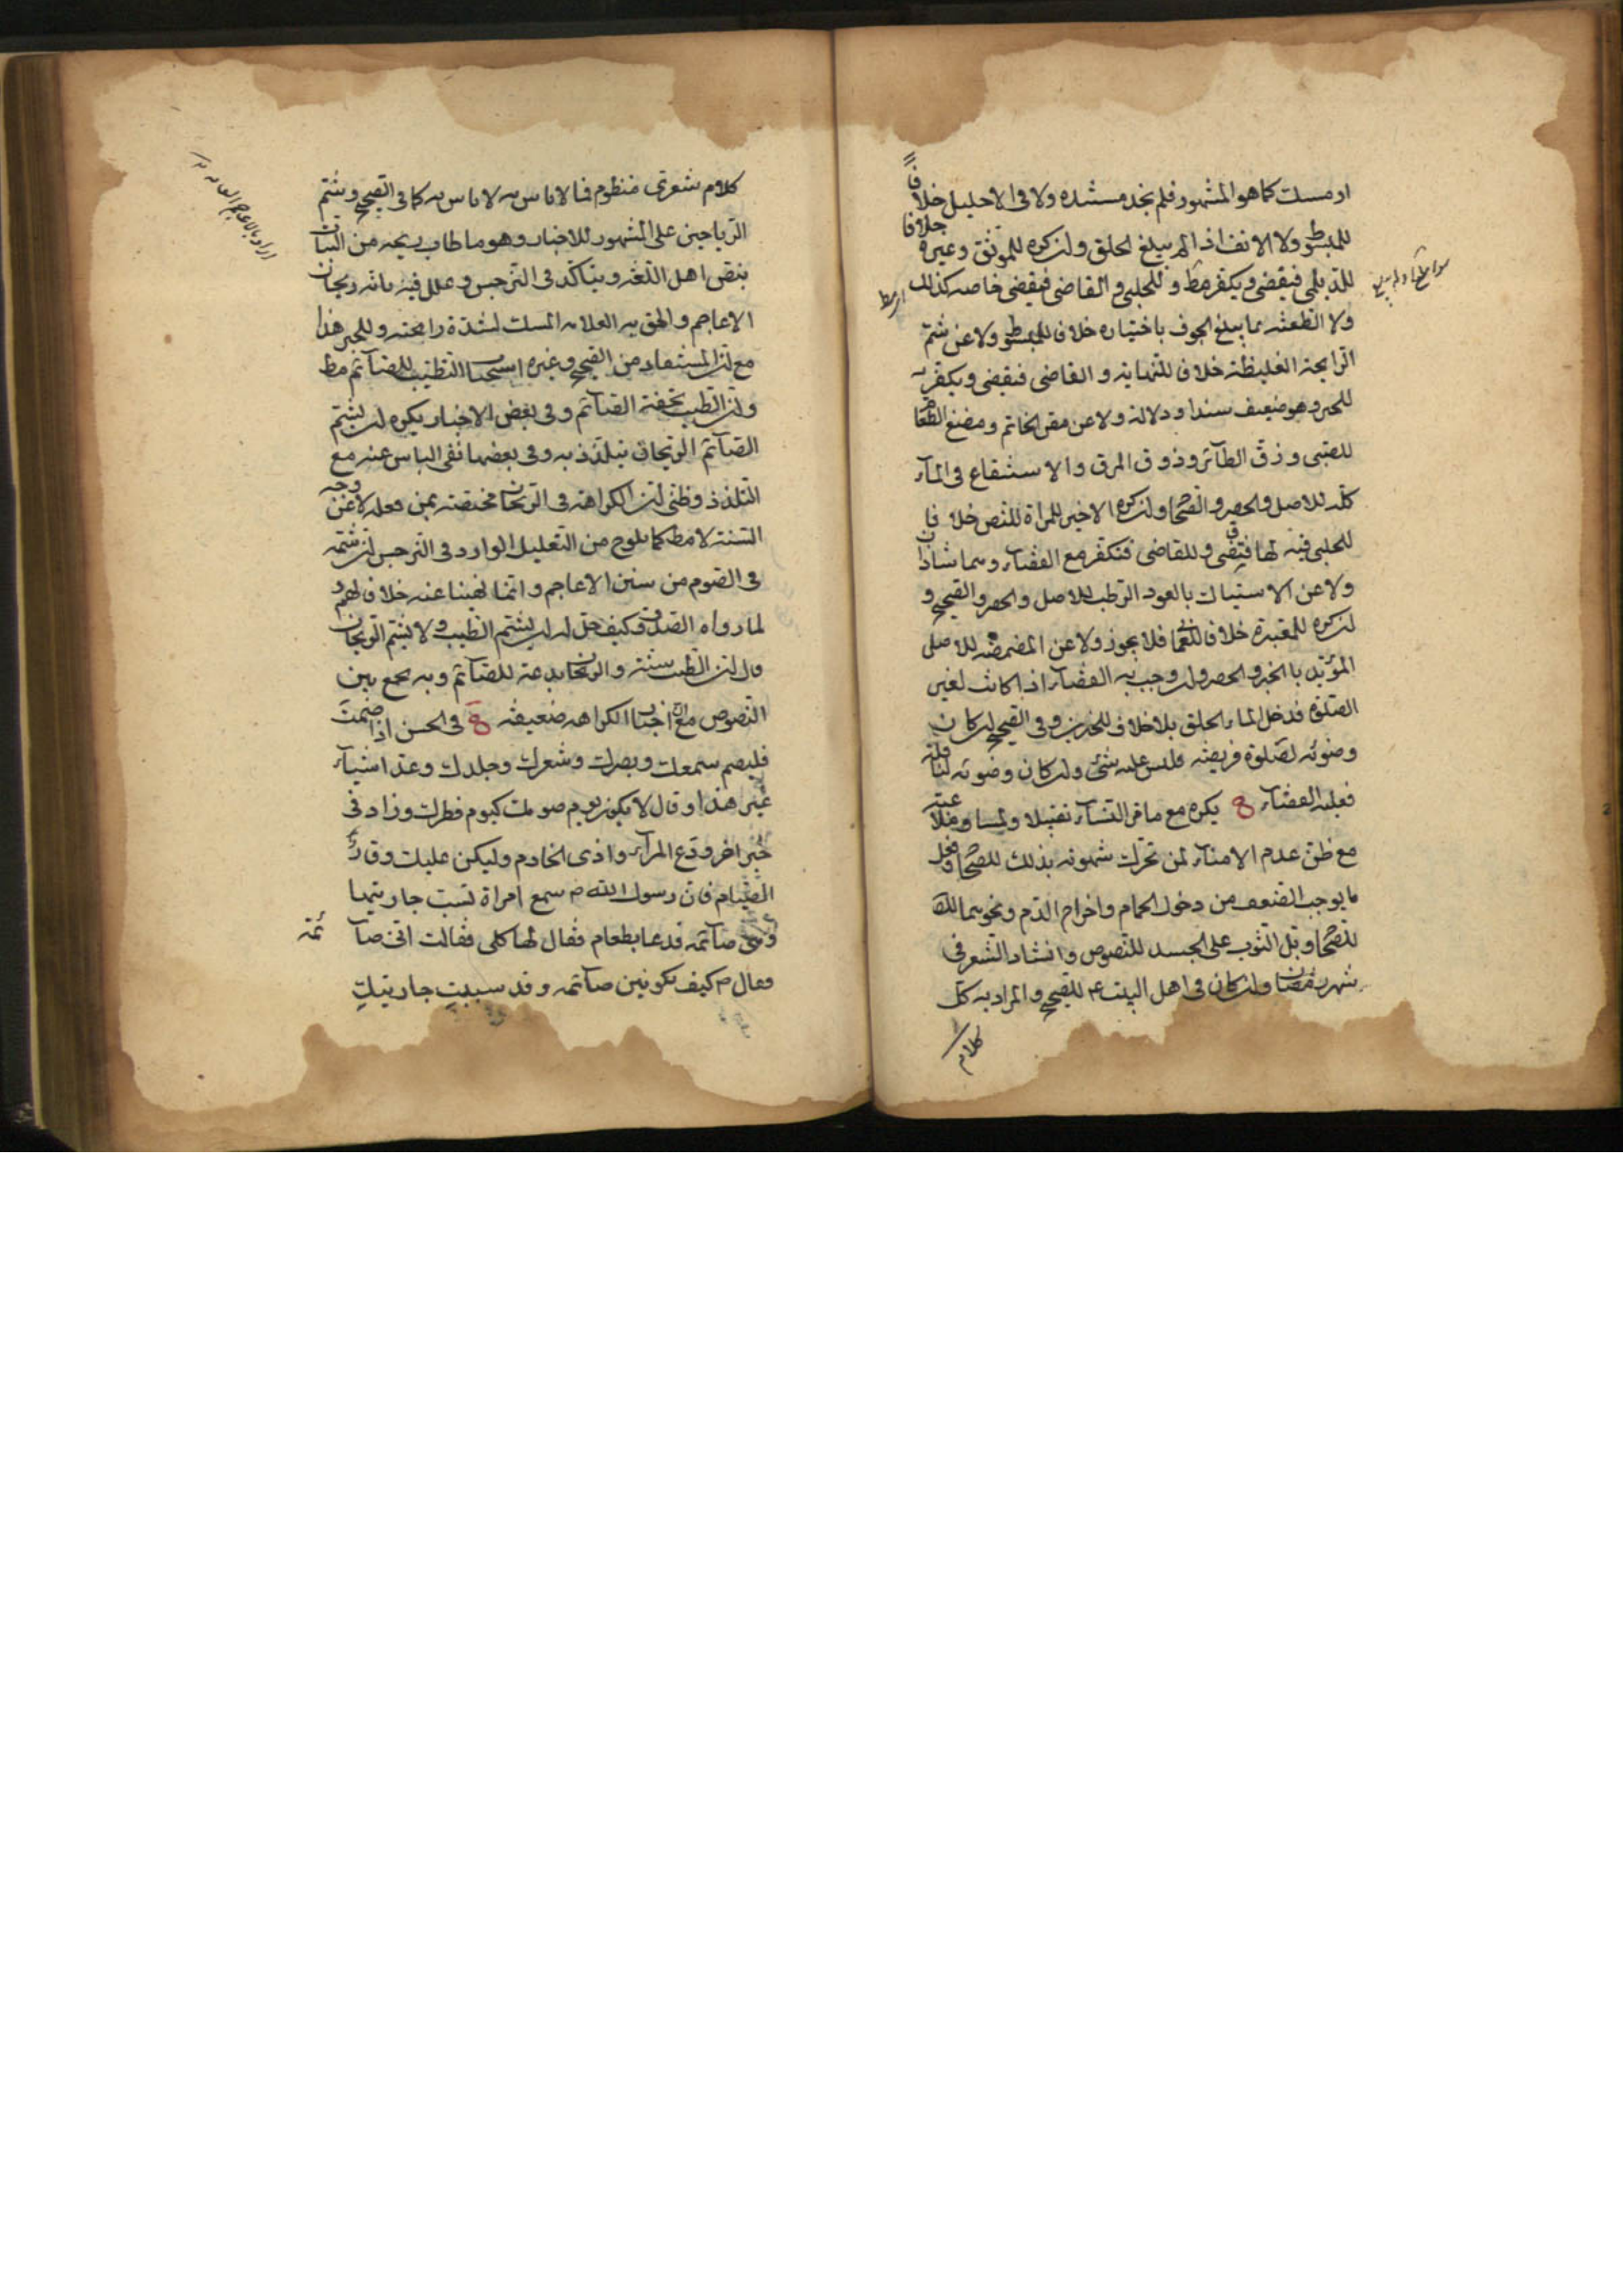 او مسك كما هو المشهور فلم نجد مستنده ولا فى الاحليل خلافا
للمبسوط ولا الانف اذا لم يبلغ الحلق وان كره للموثق وغيره خلافا
للديلمى فيقضى ويكفر مط وللحلبى والقاضى فيقضى خاصه كذلك
ولا الطعنة بما يبلغ الجوف باختياره خلافا للمبسوط ولا عن شم
الرايحة الغليظة خلافا للنهاية والقاضى فيقضى ويكفر به
للخبر وهو ضعيف سندا ودلالة ولا عن مص الخاتم ومضغ الطعام
للصبى وزق الطاير وذوق المرق والاستنقاع فى الماء
كله للاصل والحصر والصحاح وان كره الاخير للمراة للنص خلافا
للحلبى فيه لها فتقضى وللقاضى فتكفر مع القضاء وهما شاذان
ولا عن الاستياك بالعود الرطب للاصل والحصر والصحيح و
ان كره للمعتبرة خلافا للعمانى فلا يجوز ولا عن المضمضه للاصل
المؤيد بالخبر والحصر وان وجب به القضاء اذا كانت لغير
الصلوة فدخل الماء الحلق بلا خلاف للخبرين وفى الصحيح ان كان
وضوئه لصلوة فريضه فليس عليه شئ وان كان وضوئه لنافلة
فعليه القضاء يكره مع ما مر النساء تقبيلا ولمسا وملاعبة
مع ظن عدم الامناء لمن تحرك شهوته بذلك للصحاح وفعل
ما يوجب الضعف من دخول الحمام واخراج الدم ونحوهما
للصحاح وبل الثوب على الجسد للنصوص وانشاد الشعر فى
شهر رمضان وان كان فى اهل البيت ع للصحيح والمراد به كل
كلام
كلام شعرى منظوم فما لا باس به لا باس به كما فى الصحيح وشم
الرياحين على المشهور للاخبار وهو ما طاب ريحه من النبات
بنص اهل اللغة ويتاكد فى النرجس وعلل فيه بانه ريحان
الاعاجم والحق به العلامه المسك لشدة رايحته وللخبر هذا
مع ان المستفاد من الصحيح وغيره استحباب التطيب للصائم مط
وان الطيب تحفة الصائم وفى بعض الاخبار يكره ان يشم
الصائم الريحان يتلذذ به وفى بعضها نفى الباس عنه مع
التلذذ وظنى ان الكراهة فى الريحان مختصة بمن فعله لا عن وجه
السنة لا مط كما يلوح من التعليل الوارد فى النرجس ان شمه
فى الصوم من سنن الاعاجم وانما نهينا عنه خلافا لهم و
لما رواه الصدوق وكيف حل له ان يشم الطيب ولا يشم الريحان
قال ان الطيب سنة والريحان بدعة للصائم وبه يجمع بين
النصوص مع ان اخبار الكراهه ضعيفه فى الحسن اذا صمت
فليصم سمعك وبصرك وشعرك وجلدك وعد اشياء
غير هذا وقال لا يكون يوم صومك كيوم فطرك وزاد فى
خبر اخر ودع المراء واذى الخادم وليكن عليك وقار
الصيام فان رسول الله ص سمع امراة تسب جاريتها
وهى صائمه فدعا بطعام فقال لها كلى فقالت انى صائمة
فقال ص كيف تكونين صائمه وقد سببت جاريتك